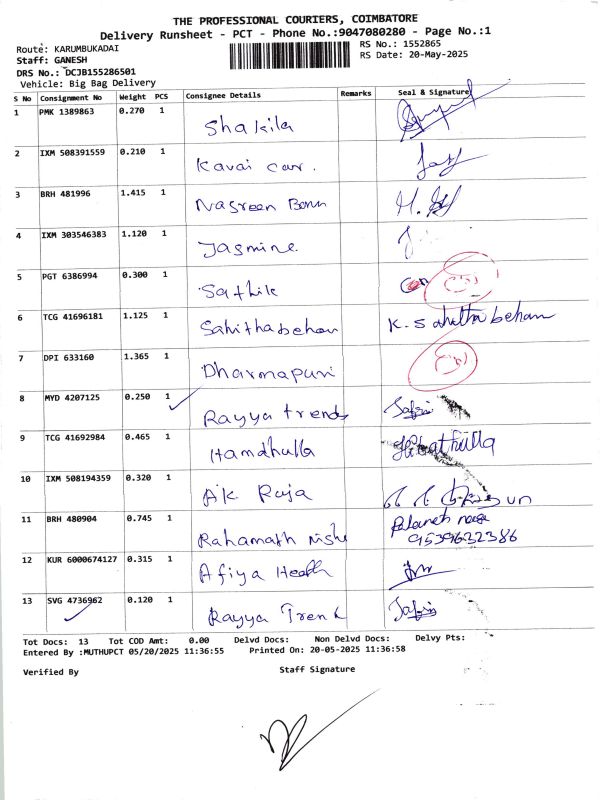 THE PROFESSIONAL COURIERS, COIMBATORE
Delivery Runsheet - PCT - Phone No.:9047080280 - Page No.:1
Route: KARUMBUKADAI RS No.: 1552865
Staff: GANESH RS Date: 20-May-2025
DRS No.: DCJB155286501
Vehicle: Big Bag Delivery
S No Consignment No Weight PCS Consignee Details Remarks Seal & Signature
1 PMK 1389863 0.270 1 Shakila
2 IXM 508391559 0.210 1 Kavai car.
3 BRH 481996 1.415 1 Nasreen Banu
4 IXM 303546383 1.120 1 Jasmine
5 PGT 6386994 0.300 1 Sathik
6 TCG 41696181 1.125 1 Sahithabehan K. Sahitha beham
7 DPI 633160 1.365 1 Dharmapuri
8 MYD 4207125 0.250 1 Rayya trends Jafrin
9 TCG 41692984 0.465 1 Hamdhulla Hibathulla
10 IXM 508194359 0.320 1 AK Raja
11 BRH 480904 0.745 1 Rahamath nisha 9539632386
12 KUR 6000674127 0.315 1 Afiya Health
13 SVG 4736962 0.120 1 Rayya Trend Jafrin
Tot Docs: 13 Tot COD Amt: 0.00 Delvd Docs: Non Delvd Docs: Delvy Pts:
Entered By :MUTHUPCT 05/20/2025 11:36:55 Printed On: 20-05-2025 11:36:58
Verified By Staff Signature